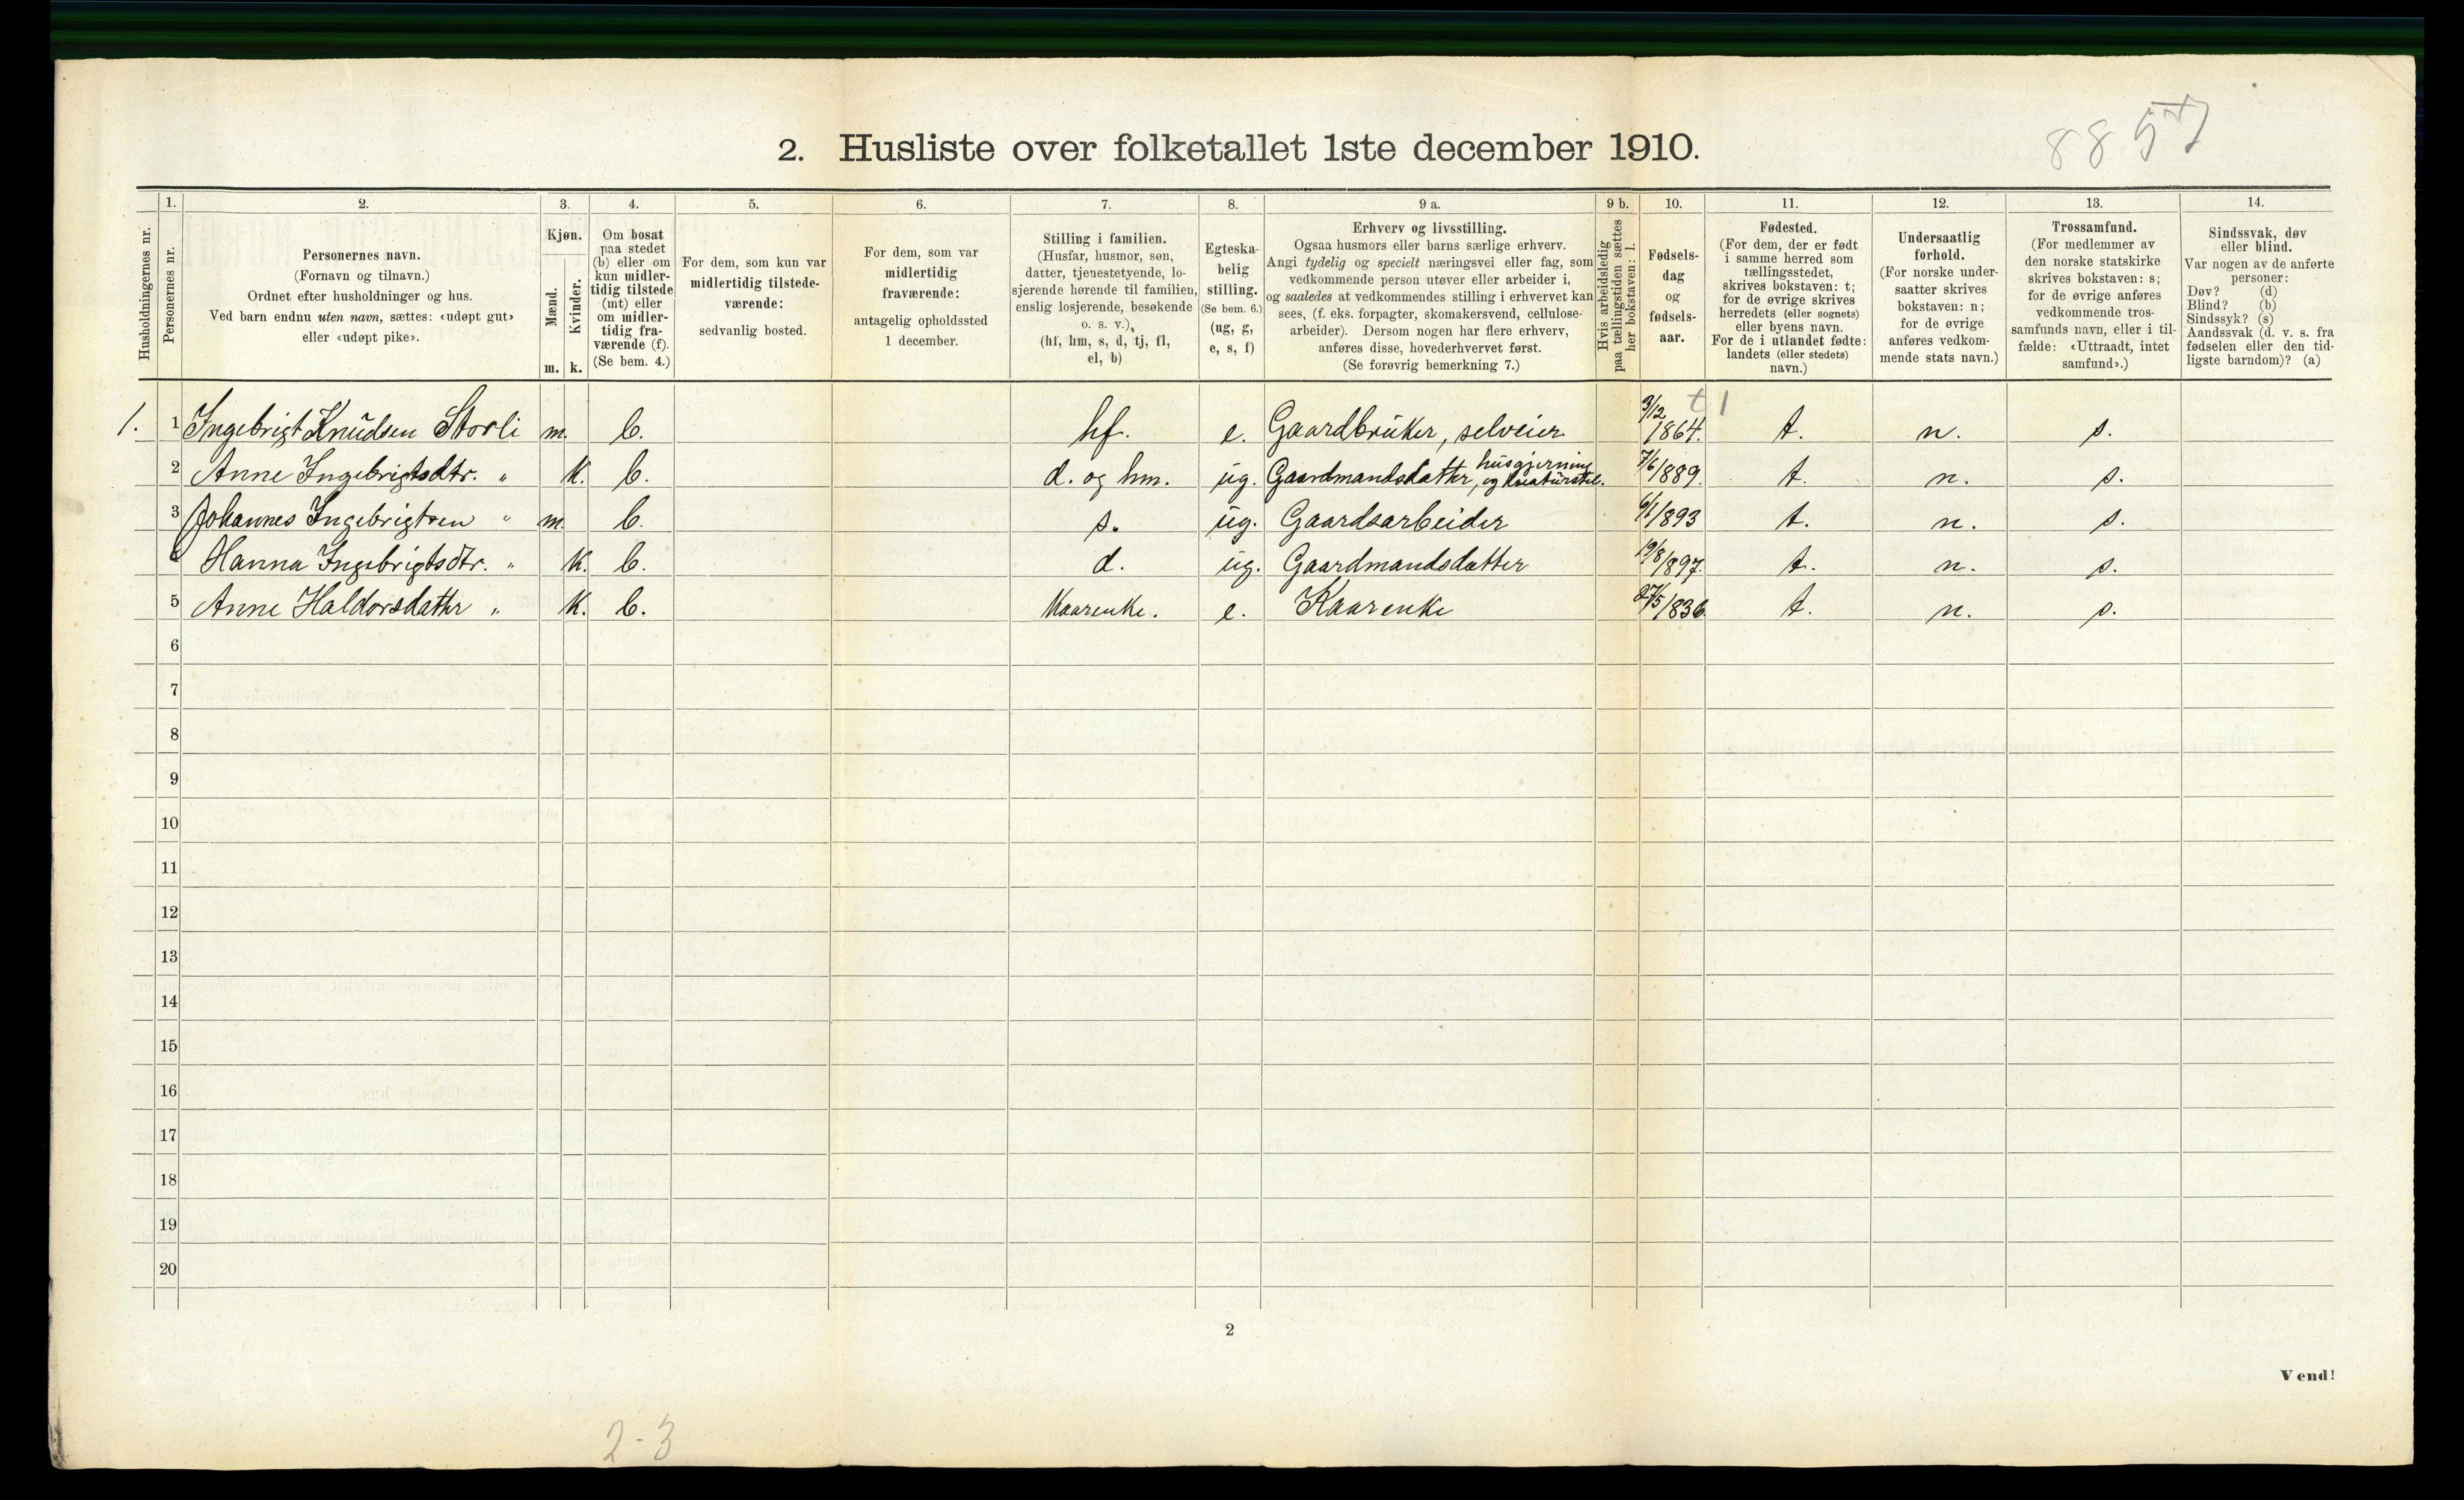 8857
2. Husliste over folketallet 1ste december 1910.
Husholdningernes nr.
1. Personernes nr.
2. Personernes navn.
(Fornavn og tilnavn.)
Ordnet efter husholdninger og hus.
Ved barn endnu uten navn, sættes: «udøpt gut»
eller «udøpt pike».
3. Kjøn.
Mænd. Kvinder.
m. k.
4. Om bosat
paa stedet
(b) eller om
kun midler-
tidig tilstede
(mt) eller
om midler-
tidig fra-
værende (f).
(Se bem. 4.)
5. For dem, som kun var
midlertidig tilstede-
værende:
sedvanlig bosted.
6. For dem, som var
midlertidig
fraværende:
antagelig opholdssted
1 december.
7. Stilling i familien.
(Husfar, husmor, søn,
datter, tjenestetyende, lo-
sjerende hørende til familien,
enslig losjerende, besøkende
o. s. v.)
(hf, hm, s, d, tj, fl,
el, b)
8. Egteska-
belig
stilling.
(Se bem. 6.)
(ug, g,
e, s, f)
9 a. Erhverv og livsstilling.
Ogsaa husmors eller barns særlige erhverv.
Angi tydelig og specielt næringsvei eller fag, som
vedkommende person utøver eller arbeider i,
og saaledes at vedkommendes stilling i erhvervet kan
sees, (f. eks. forpagter, skomakersvend, cellulose-
arbeider). Dersom nogen har flere erhverv,
anføres disse, hovederhvervet først.
(Se forøvrig bemerkning 7.)
9 b. Hvis arbeidsledig
paa tællingstiden sættes
her bokstaven: l.
10. Fødsels-
dag
og
fødsels-
aar.
11. Fødested.
(For dem, der er født
i samme herred som
tællingsstedet,
skrives bokstaven: t;
for de øvrige skrives
herredets (eller sognets)
eller byens navn.
For de i utlandet fødte:
landets (eller stedets)
navn.)
12. Undersaatlig
forhold.
(For norske under-
saatter skrives
bokstaven: n;
for de øvrige
anføres vedkom-
mende stats navn.)
13. Trossamfund.
(For medlemmer av
den norske statskirke
skrives bokstaven: s;
for de øvrige anføres
vedkommende tros-
samfunds navn, eller i til-
fælde: «Uttraadt, intet
samfund».)
14. Sindssvak, døv
eller blind.
Var nogen av de anførte
personer:
Døv? (d)
Blind? (b)
Sindssyk? (s)
Aandssvak (d. v. s. fra
fødselen eller den tid-
ligste barndom)? (a)
t 1
1. 1 Ingebrigt Knudsen Storli m. b. hf. e. Gaardbruker, selveier 3/12 1864. t. n. s.
2 Anne Ingebrigtsdtr. " k. b. d. og hm. ug. Gaardmandsdatter, husgjerning og kreaturstel. 7/6 1889. t. n. s.
3 Johannes Ingebrigtsen " m. b. s. ug. Gaardsarbeider 6/1 1893 t. n. s.
4 Hanna Ingebrigtsdtr. " k. b. d. ug. Gaardmandsdatter 19/8 1897. t. n. s.
5 Anne Haldorsdatter " k. b. Kaarenke. e. Kaarenke 27/5 1836. t. n. s.
6
7
8
9
10
11
12
13
14
15
16
17
18
19
20
2
Vend!
2-3